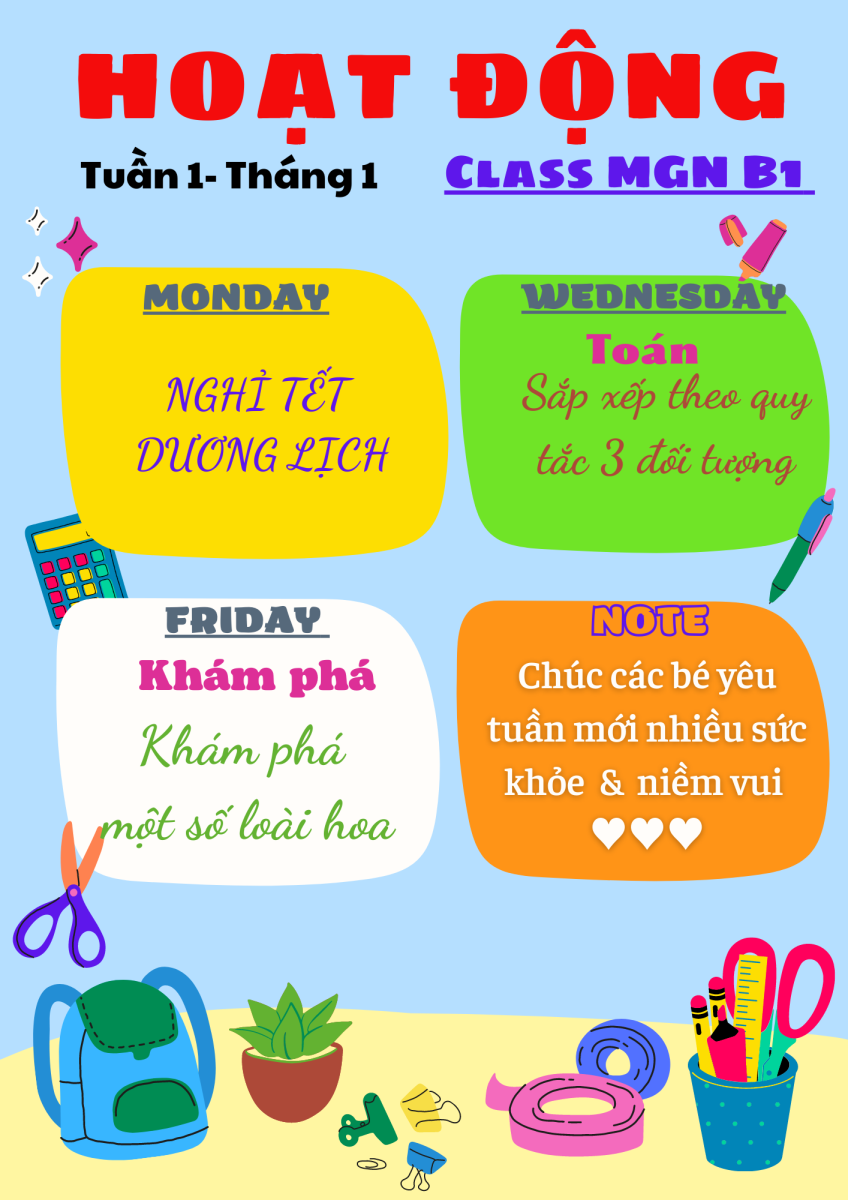 HOẠT ĐỘNG
Tuần 1- Tháng 1
CLASS MGN B1
MONDAY
NGHỈ TẾT
DƯƠNG LỊCH
WEDNESDAY
Toán
Sắp xếp theo quy
tắc 3 đối tượng
FRIDAY
Khám phá
Khám phá
một số loài hoa
NOTE
Chúc các bé yêu
tuần mới nhiều sức
khỏe & niềm vui
♥♥♥